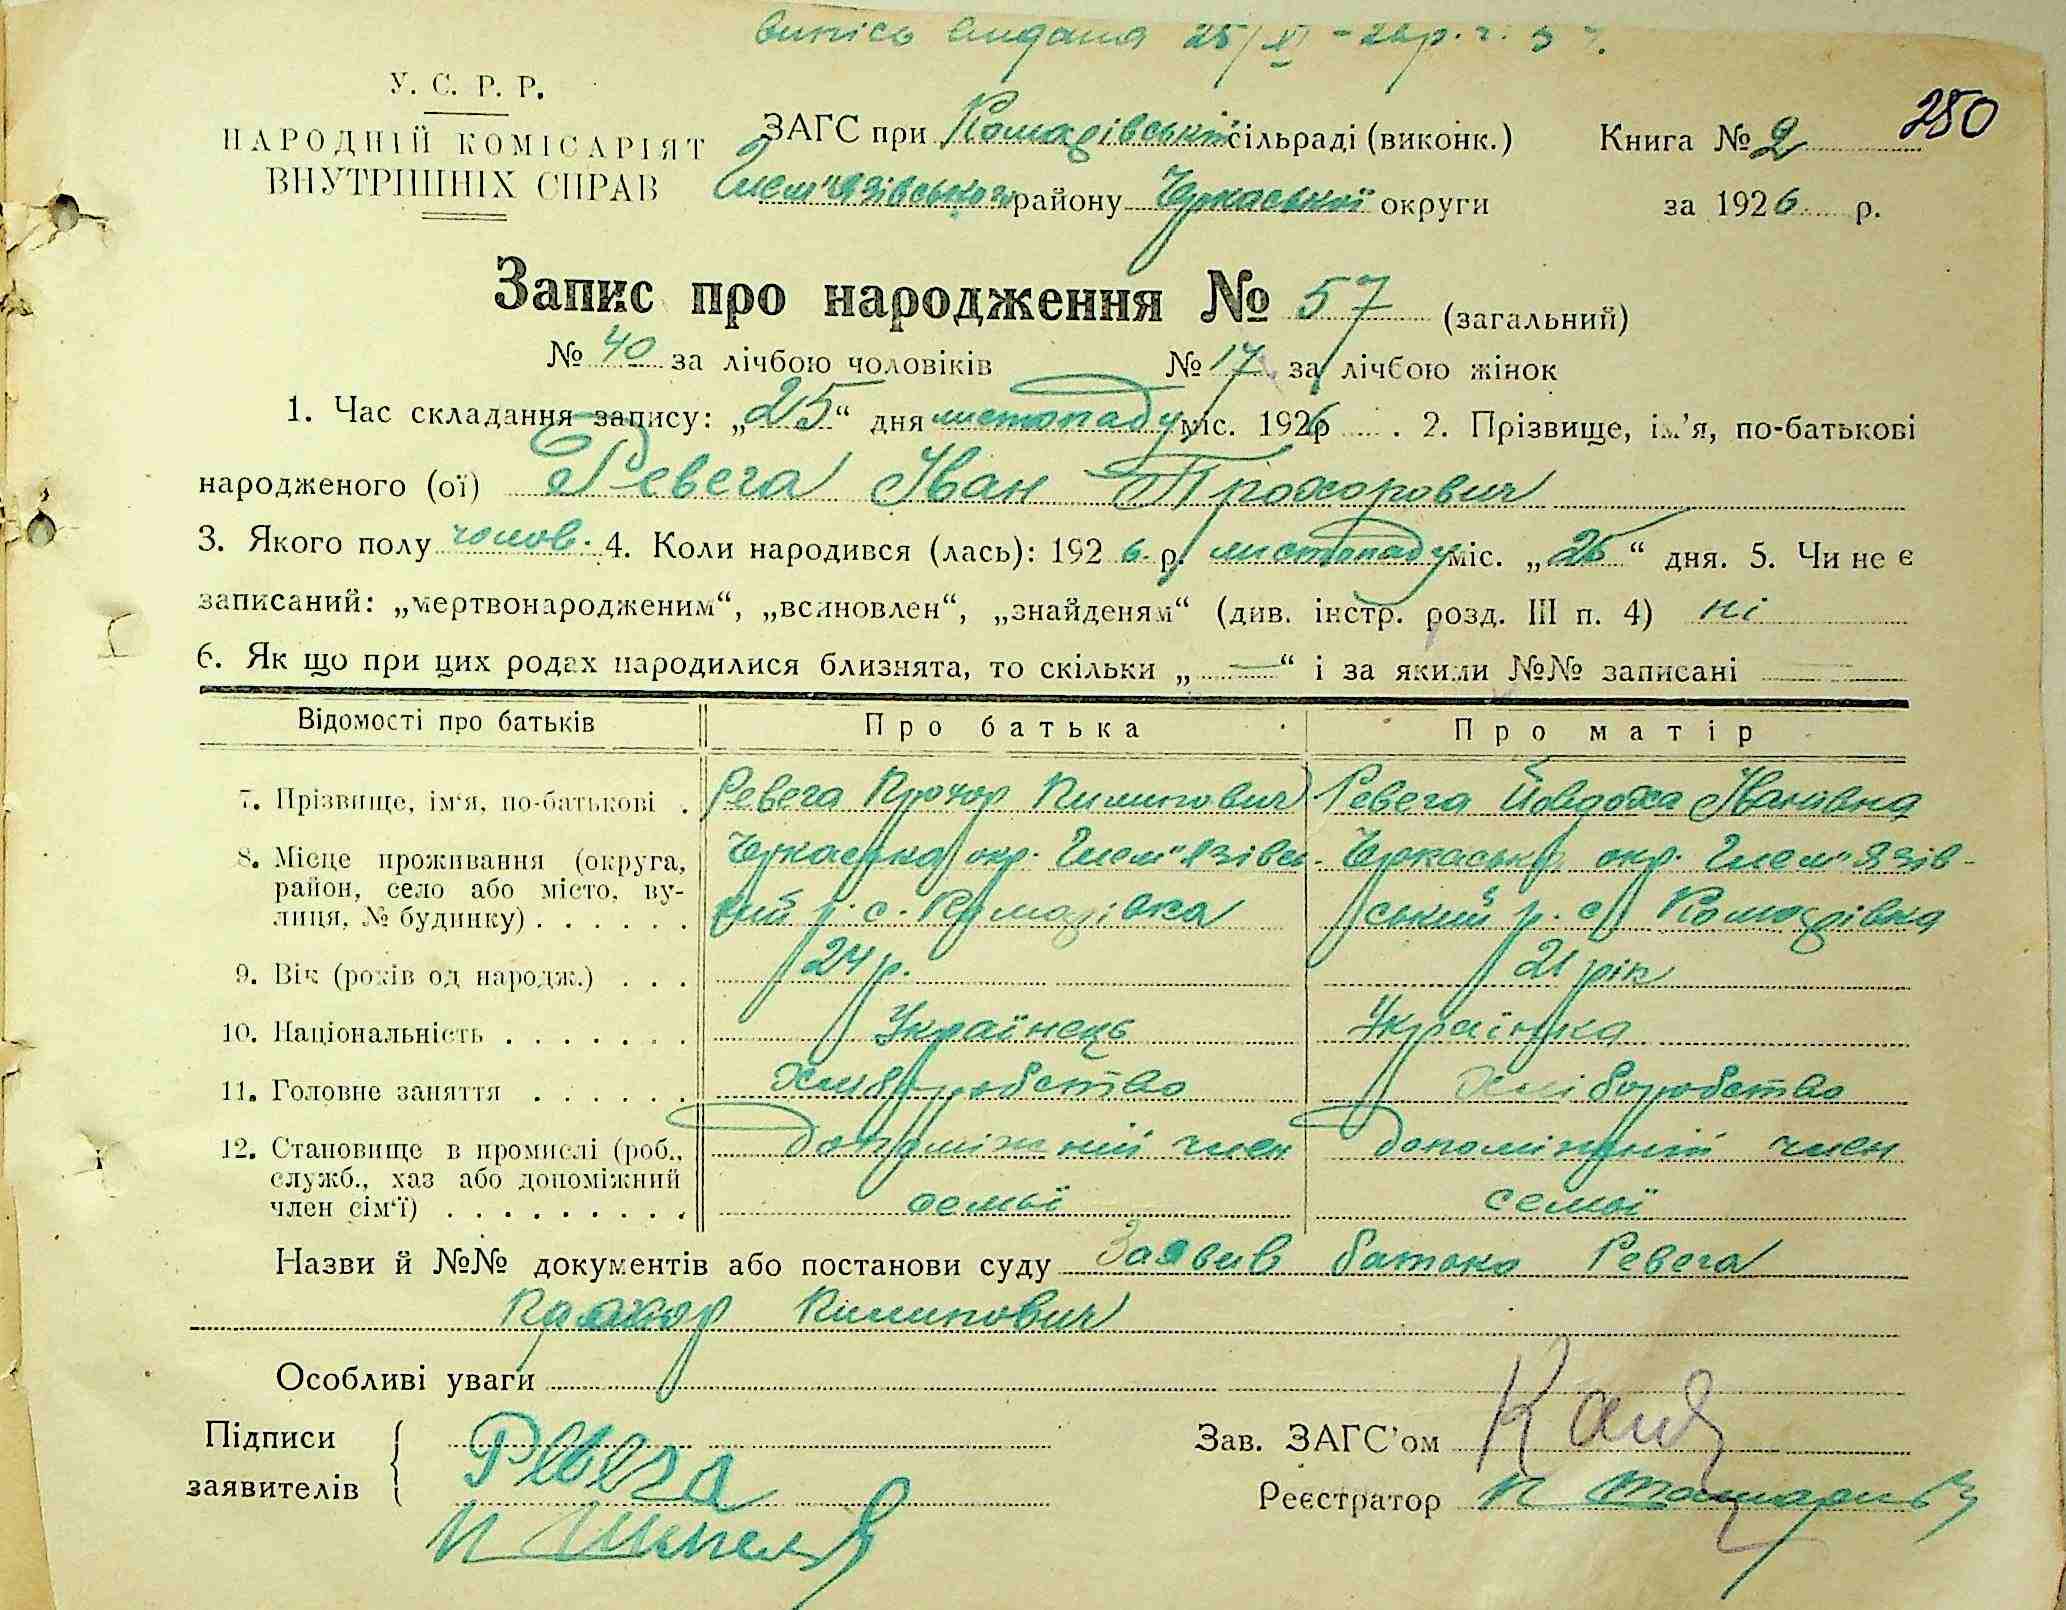 Випісь видана 25/XI - 26 р. ч. 57.
250
У. С. Р. Р.
НАРОДНІЙ КОМІСАРІЯТ
ВНУТРІШНІХ СПРАВ
ЗАГС при Комарівській сільраді (виконк.)
Книга № 2
Гельм'язівського району Черкаської округи
за 1926 р.
Запис про народження № 57 (загальний)
№ 40 за лічбою чоловіків № 17 за лічбою жінок
1. Час складання запису: „25“ дня листопаду міс. 1926 р. 2. Прізвище, ім'я, по-батькові
народженого (ої) Ревега Іван Прохорович
3. Якого полу чолов. 4. Коли народився (лась): 1926 р. листопаду міс. „25“ дня. 5. Чи не є
записаний: „мертвонародженим“, „всиновлен“, „знайденям“ (див. інстр. розд. III п. 4) ні
6. Як що при цих родах народилися близнята, то скільки „—“ і за якими №№ записані —
Відомості про батьків Про батька Про матір
7. Прізвище, ім'я, по-батькові . Ревега Прохор Пилипович Ревега Йовдоха Іванівна
8. Місце проживання (округа, Черкаська окр. Гелем'язівсь- Черкаська окр. Гелем'язів-
район, село або місто, ву- кий р. с. Комарівка ський р. с. Комарівка
лиця, № будинку) . . . . . .
9. Вік (років од народж.) . . . 24 р. 21 рік
10. Національність . . . . . . . Українець Українка
11. Головне заняття . . . . . . Хліборобство Хліборобство
12. Становище в промислі (роб., допоміжний член допоміжний член
служб., хаз або допоміжний семьї семьї
член сім'ї) . . . . . . . . .
Назви й №№ документів або постанови суду Заявив батько Ревега
Прохор Пилипович
Особливі уваги
Підписи
заявителів
Ревега
Зав. ЗАГС'ом
Реєстратор